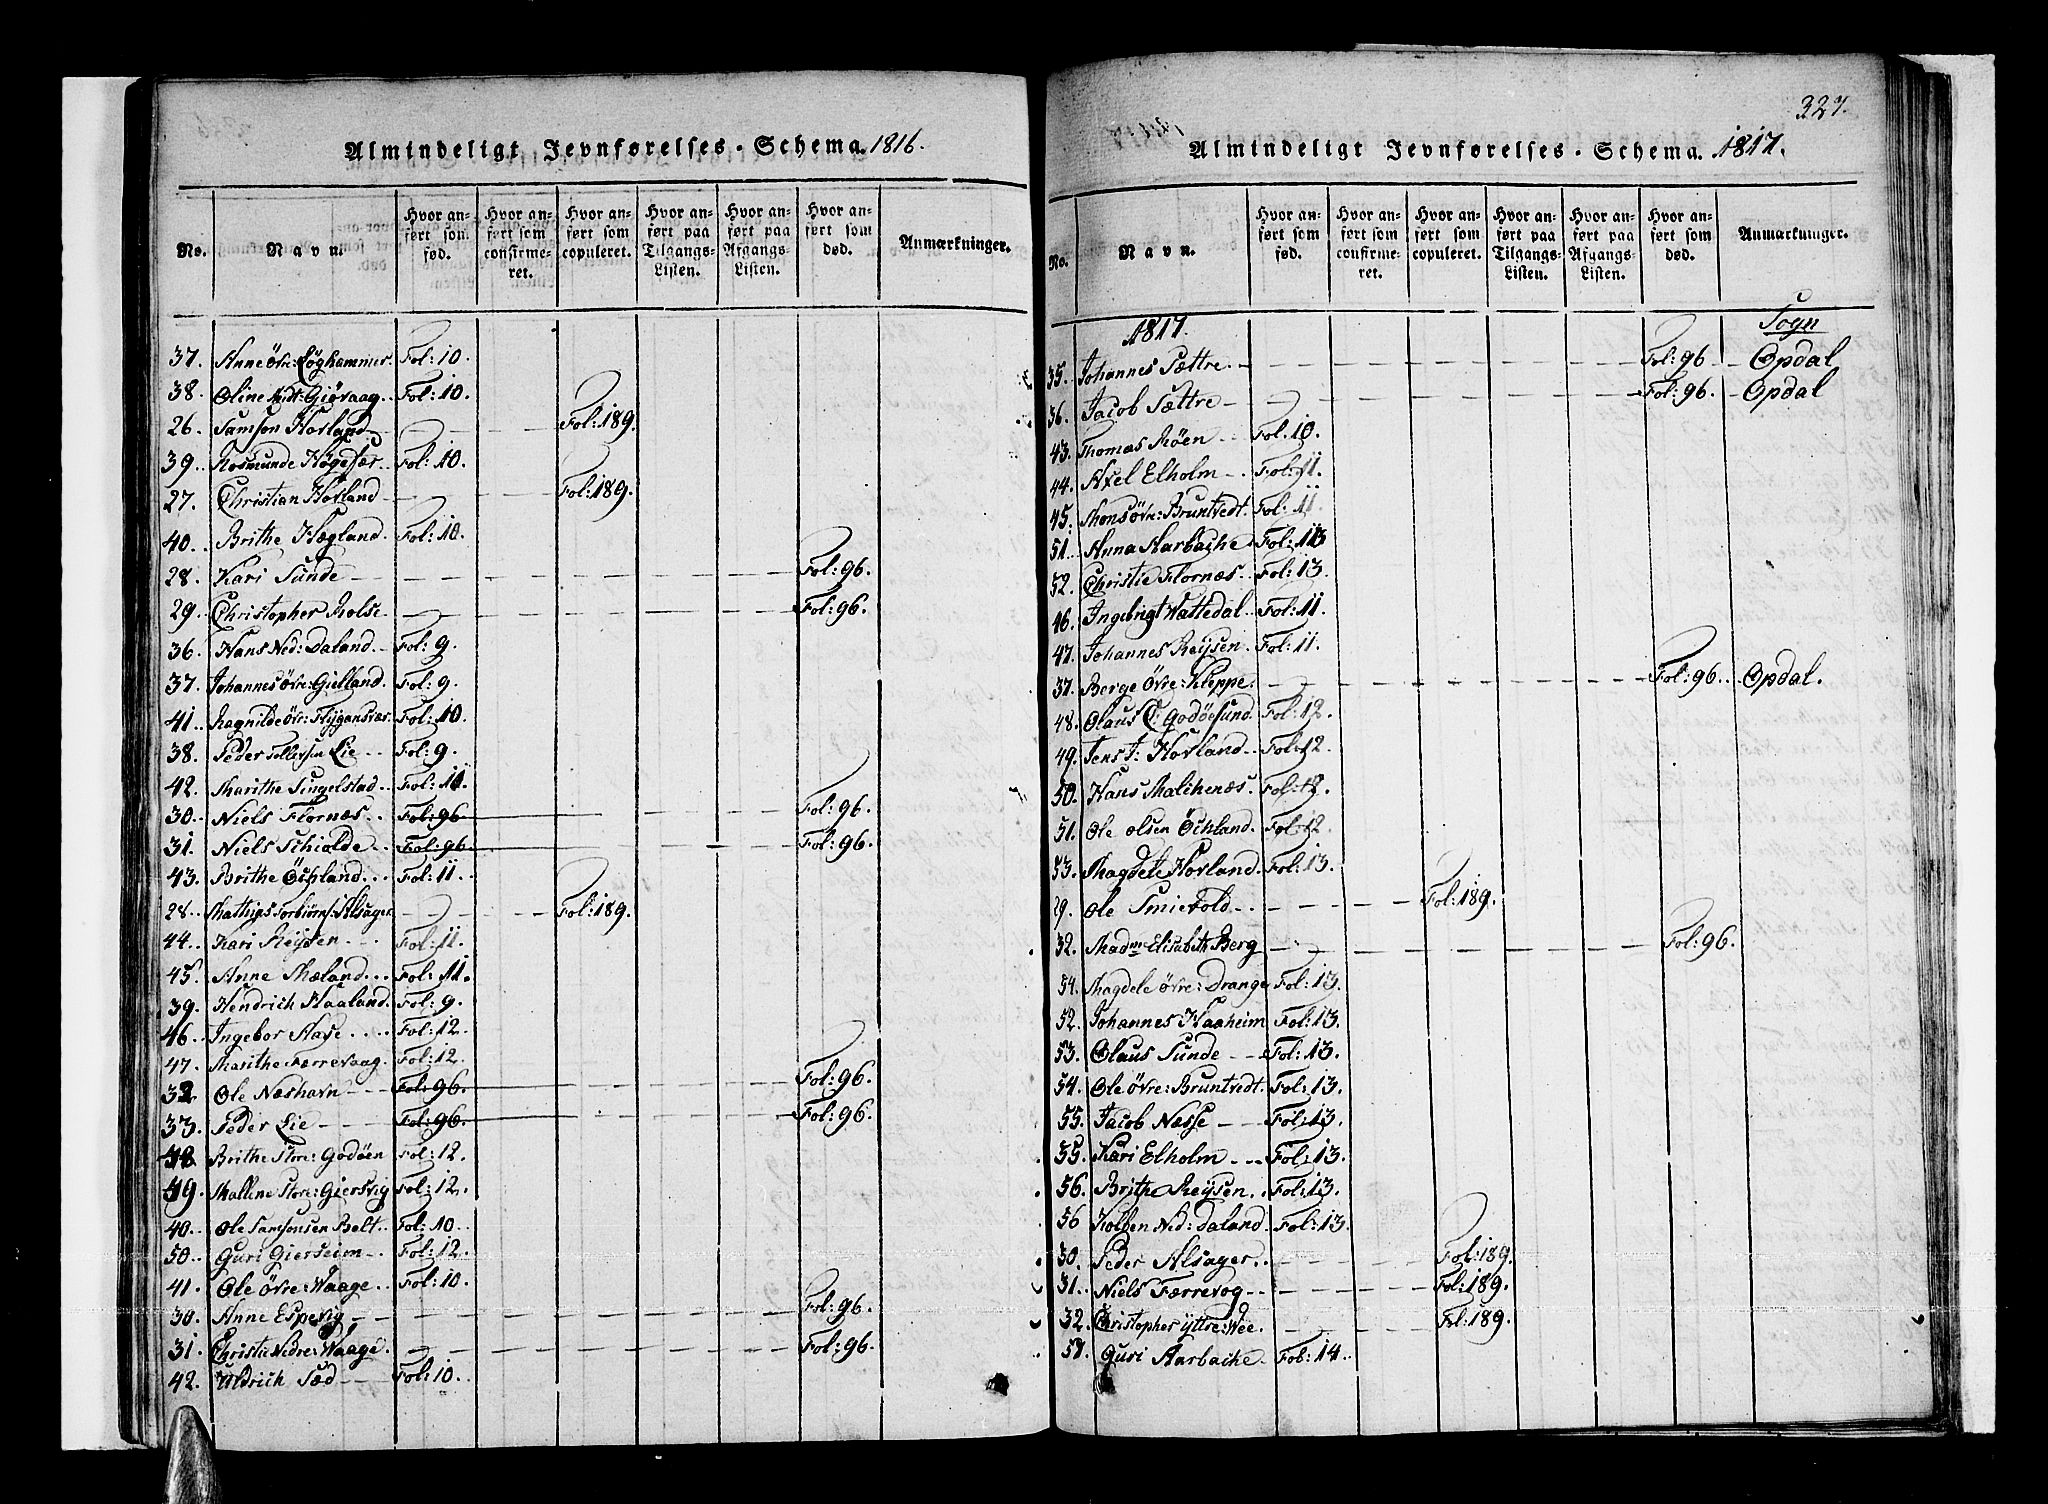 Almindeligt Jevnførelses-Schema. 1816.
No. Navn. Hvor anført som fød. Hvor anført som confirmeret. Hvor anført som copuleret. Hvor anført paa Tilgangs-Listen. Hvor anført paa Afgangs-Listen. Hvor anført som død. Anmærkninger.
37. Anne övre: Løghammer. Fol: 10.
38. Oline Gjövaag.. Fol: 10.
26. Samson Hovland Fol: 189.
39. Rosmunde Högesæter.. Fol: 10.
27. Christian Hovland Fol: 189.
40. Brithe Hægland. Fol: 10.
28. Kari Sunde Fol: 96.
29. Christopher Rolse Fol: 96.
36. Hans Ned: Daland. Fol: 9.
37. Johannes övre: Gielland. Fol: 9.
41. Ragnilde övre: Flygansvær. Fol: 10.
38. Peder Tollefsen Lie Fol: 9.
42. Marithe Singelstad.. Fol: 11.
30. Niels Flornæs.. Fol: 96 Fol: 96.
31. Niels Schialde.. Fol: 96. Fol: 96.
43. Brithe Öchland... Fol: 11.
28. Mathias Torbiörns: Alsager. Fol: 189.
44. Kari Reysen Fol: 11.
45. Anne Mæland... Fol: 11.
39. Hendrich Haaland. Fol: 9.
46. Ingebor Have.... Fol: 12.
47. Marithe Færrevaag. Fol: 12.
32. Ole Næshavn Fol: 96. Fol: 96.
33. Peder Lie Fol: 96. Fol: 96.
48. Brithe Store: Godöen Fol: 12.
49. Malline Store: Giersvig Fol: 12.
40. Ole Samsonsen Belt.. Fol: 10.
50. Guri Gierseim.. Fol: 12.
41. Ole övre: Waage.. Fol: 10.
30. Anne Espevig Fol: 96.
31. Christi Nedre: Waage. Fol: 96.
42. Uldrich Sæd Fol: 10.
327.
Almindeligt Jevnførelses-Schema. 1817.
No. Navn. Hvor anført som fød. Hvor anført som confirmeret. Hvor anført som copuleret. Hvor anført paa Tilgangs-Listen. Hvor anført paa Afgangs-Listen. Hvor anført som død. Anmærkninger.
1817. Sogn
35. Johannes Sættre. Fol: 96 Opdal
36. Jacob Sættre Fol: 96. Opdal
43. Thomas Röen Fol: 10.
44. Axel Elholm Fol: 11.
45. Mons övre: Bruntvedt. Fol: 11.
51. Anna Aarbache. Fol: 13
52. Christie Flornæs.. Fol: 13.
46. Ingebrigt Wattedal.. Fol: 11.
47. Johannes Reysen Fol: 11.
37. Berge Övre: Kleppe. Fol: 96. Opdal.
48. Olaus C: Godöesund. Fol: 12.
49. Jens J: Hovland Fol: 12.
50. Hans Malchenæs. Fol: 12.
51. Ole olsen Öchland. Fol: 12.
53. Magdele Hovland. Fol: 13.
29. Ole Smievold Fol: 189.
32. Madm Elisabeth Berg Fol: 96.
54. Magdele övre: Drange Fol: 13.
52. Johannes Haaheim Fol: 13.
53. Olaus Sunde Fol: 13.
54. Ole övre: Bruntvedt. Fol: 13.
55. Jacob Næsse Fol: 13.
55. Kari Elholm Fol: 13.
56. Brithe Reysen.. Fol: 13.
56 Kolben Ned: daland. Fol: 13.
30. Peder Alsager.. Fol: 189.
31. Niels Færrevog Fol: 189.
32. Christopher yttre: Wee. Fol: 189.
57. Guri Aarbache. Fol: 14.